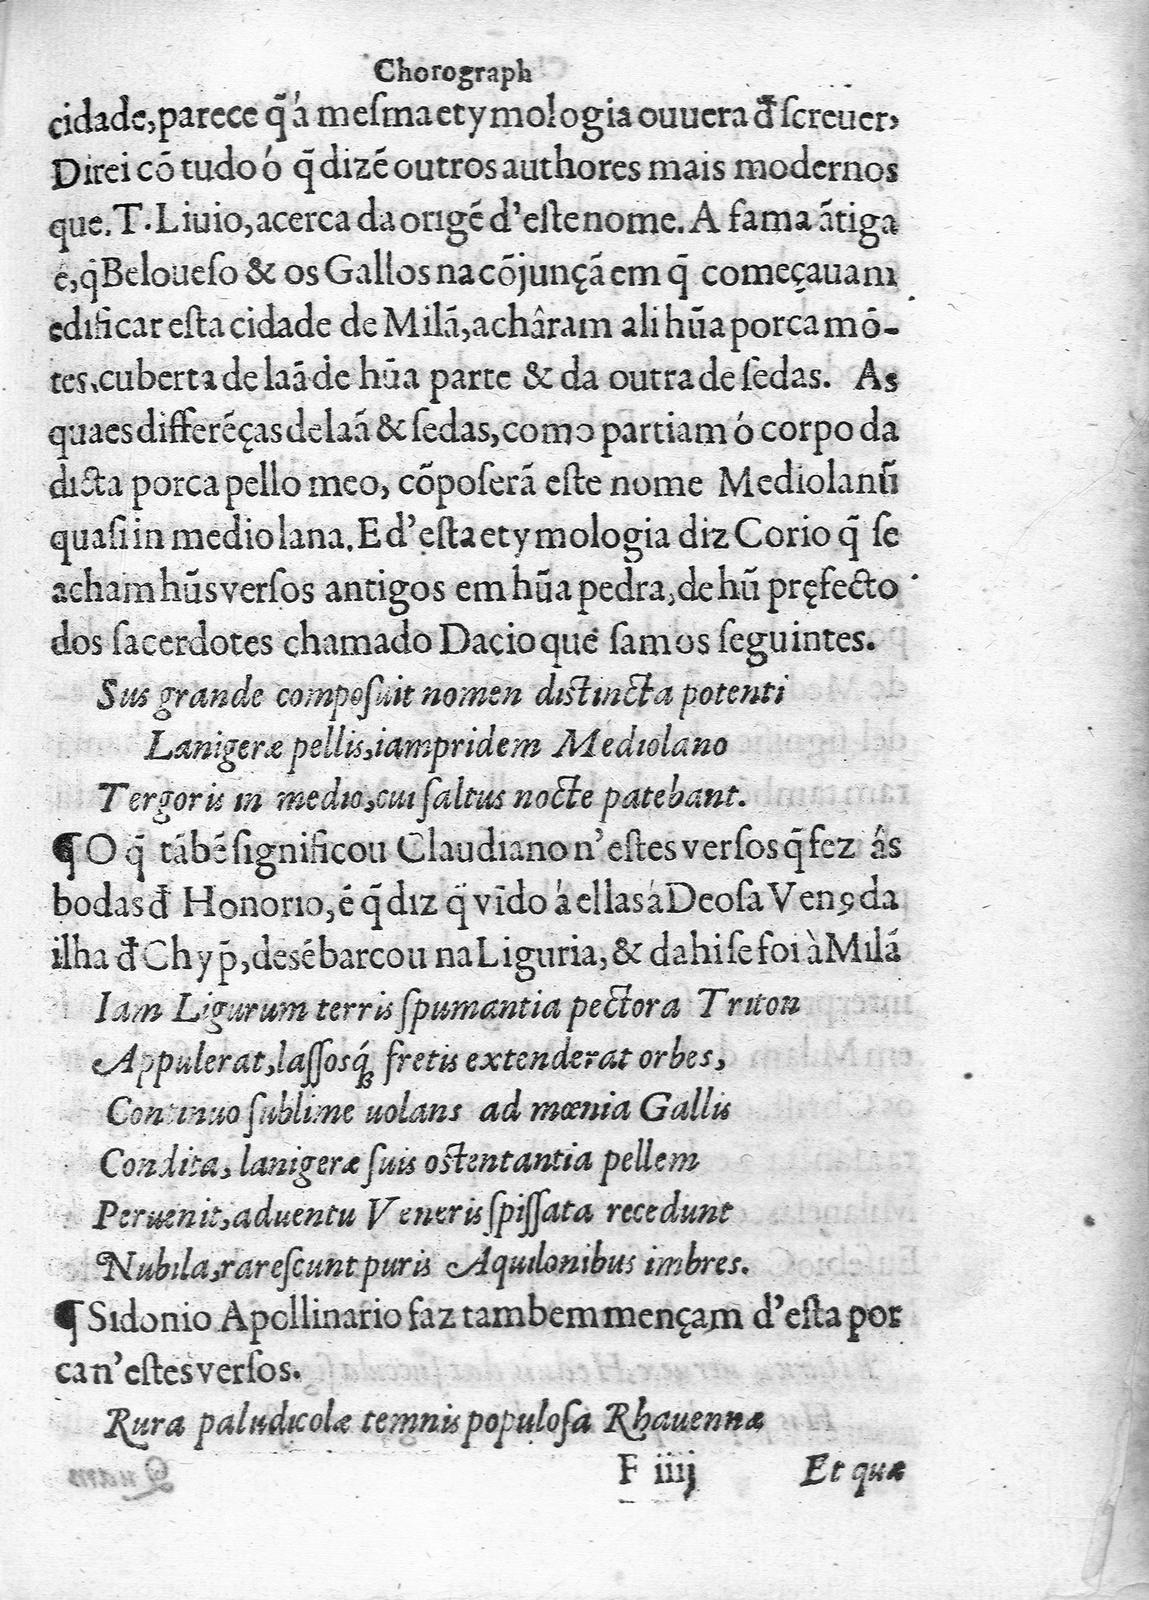 Chorograph
cidade, parece q̃ á meſma etymologia ouuera đ ſcreuer,
Direi cõ tudo ó q̃ dizẽ outros authores mais modernos
que. T. Liuio, acerca da origẽ d'eſte nome. A fama ãtiga
é, q̃ Beloueſo & os Gallos na cõjunçã em q̃ começauam
edificar eſta cidade de Milã, achâram ali hũa porca mõ-
tes, cuberta de laã de hũa parte & da outra de ſedas. As
quaes differẽças de laã & ſedas, como partiam ó corpo da
dicta porca pello meo, cõpoſerã eſte nome Mediolanũ
quaſi in medio lana. E d'eſta etymologia diz Corio q̃ ſe
acham hũs verſos antigos em hũa pedra, de hũ pręfecto
dos ſacerdotes chamado Dacio que ſam os ſeguintes.
Sus grande compoſuit nomen diſtincta potenti
Lanigeræ pellis, iampridem Mediolano
Tergoris in medio, cui ſaltus nocte patebant.
¶ O q̃ tãbẽ ſignificou Claudiano n'eſtes verſos q̃ fez ás
bodas đ Honorio, ẽ q̃ diz q̃ vĩdo á ellas á Deoſa Venꝯ da
ilha đ Chyp̃, deſẽbarcou na Liguria, & dahi ſe foi à Milã
Iam Ligurum terris ſpumantia pectora Triton
Appulerat, laſſosq́ꝫ fretis extenderat orbes,
Continuo ſublime uolans ad mœnia Gallis
Condita, lanigeræ ſuis oſtentantia pellem
Peruenit, aduentu Veneris ſpiſſata recedunt
Nubila, rareſcunt puris Aquilonibus imbres.
¶ Sidonio Apollinario faz tambem mençam d'eſta por
ca n'eſtes verſos.
Rura paludicolæ temnis populoſa Rhauennæ
F iiij Et quæ